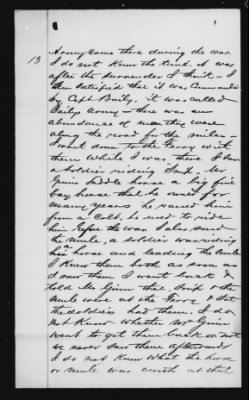 13
Army came there during the war
I do not know the time. it was
after the surrender I think - I
am satisfied that it was commanded
by Capt Baily, it was called
Bailys Army - there was an
abundance of men they were
along the road for six miles -
I went down to the Ferry with
them While I was there I saw
a soldier riding Snip, Mr
Ginns saddle horse a big fine
bay horse that he owned for
many years he raised him
from a colt, he used to ride
him before the war I also saw
the Mule, a soldier was riding
his horse and leading the Mule
I knew them both as soon as
I saw them I went back &
told Mr Ginn that Snip & the
Mule were at the Ferry & that
the soldiers had them. I do
not know whether Mr Ginn
went to get them back or not
we never saw them afterwards
I do not know what the horse
or mule was worth at that